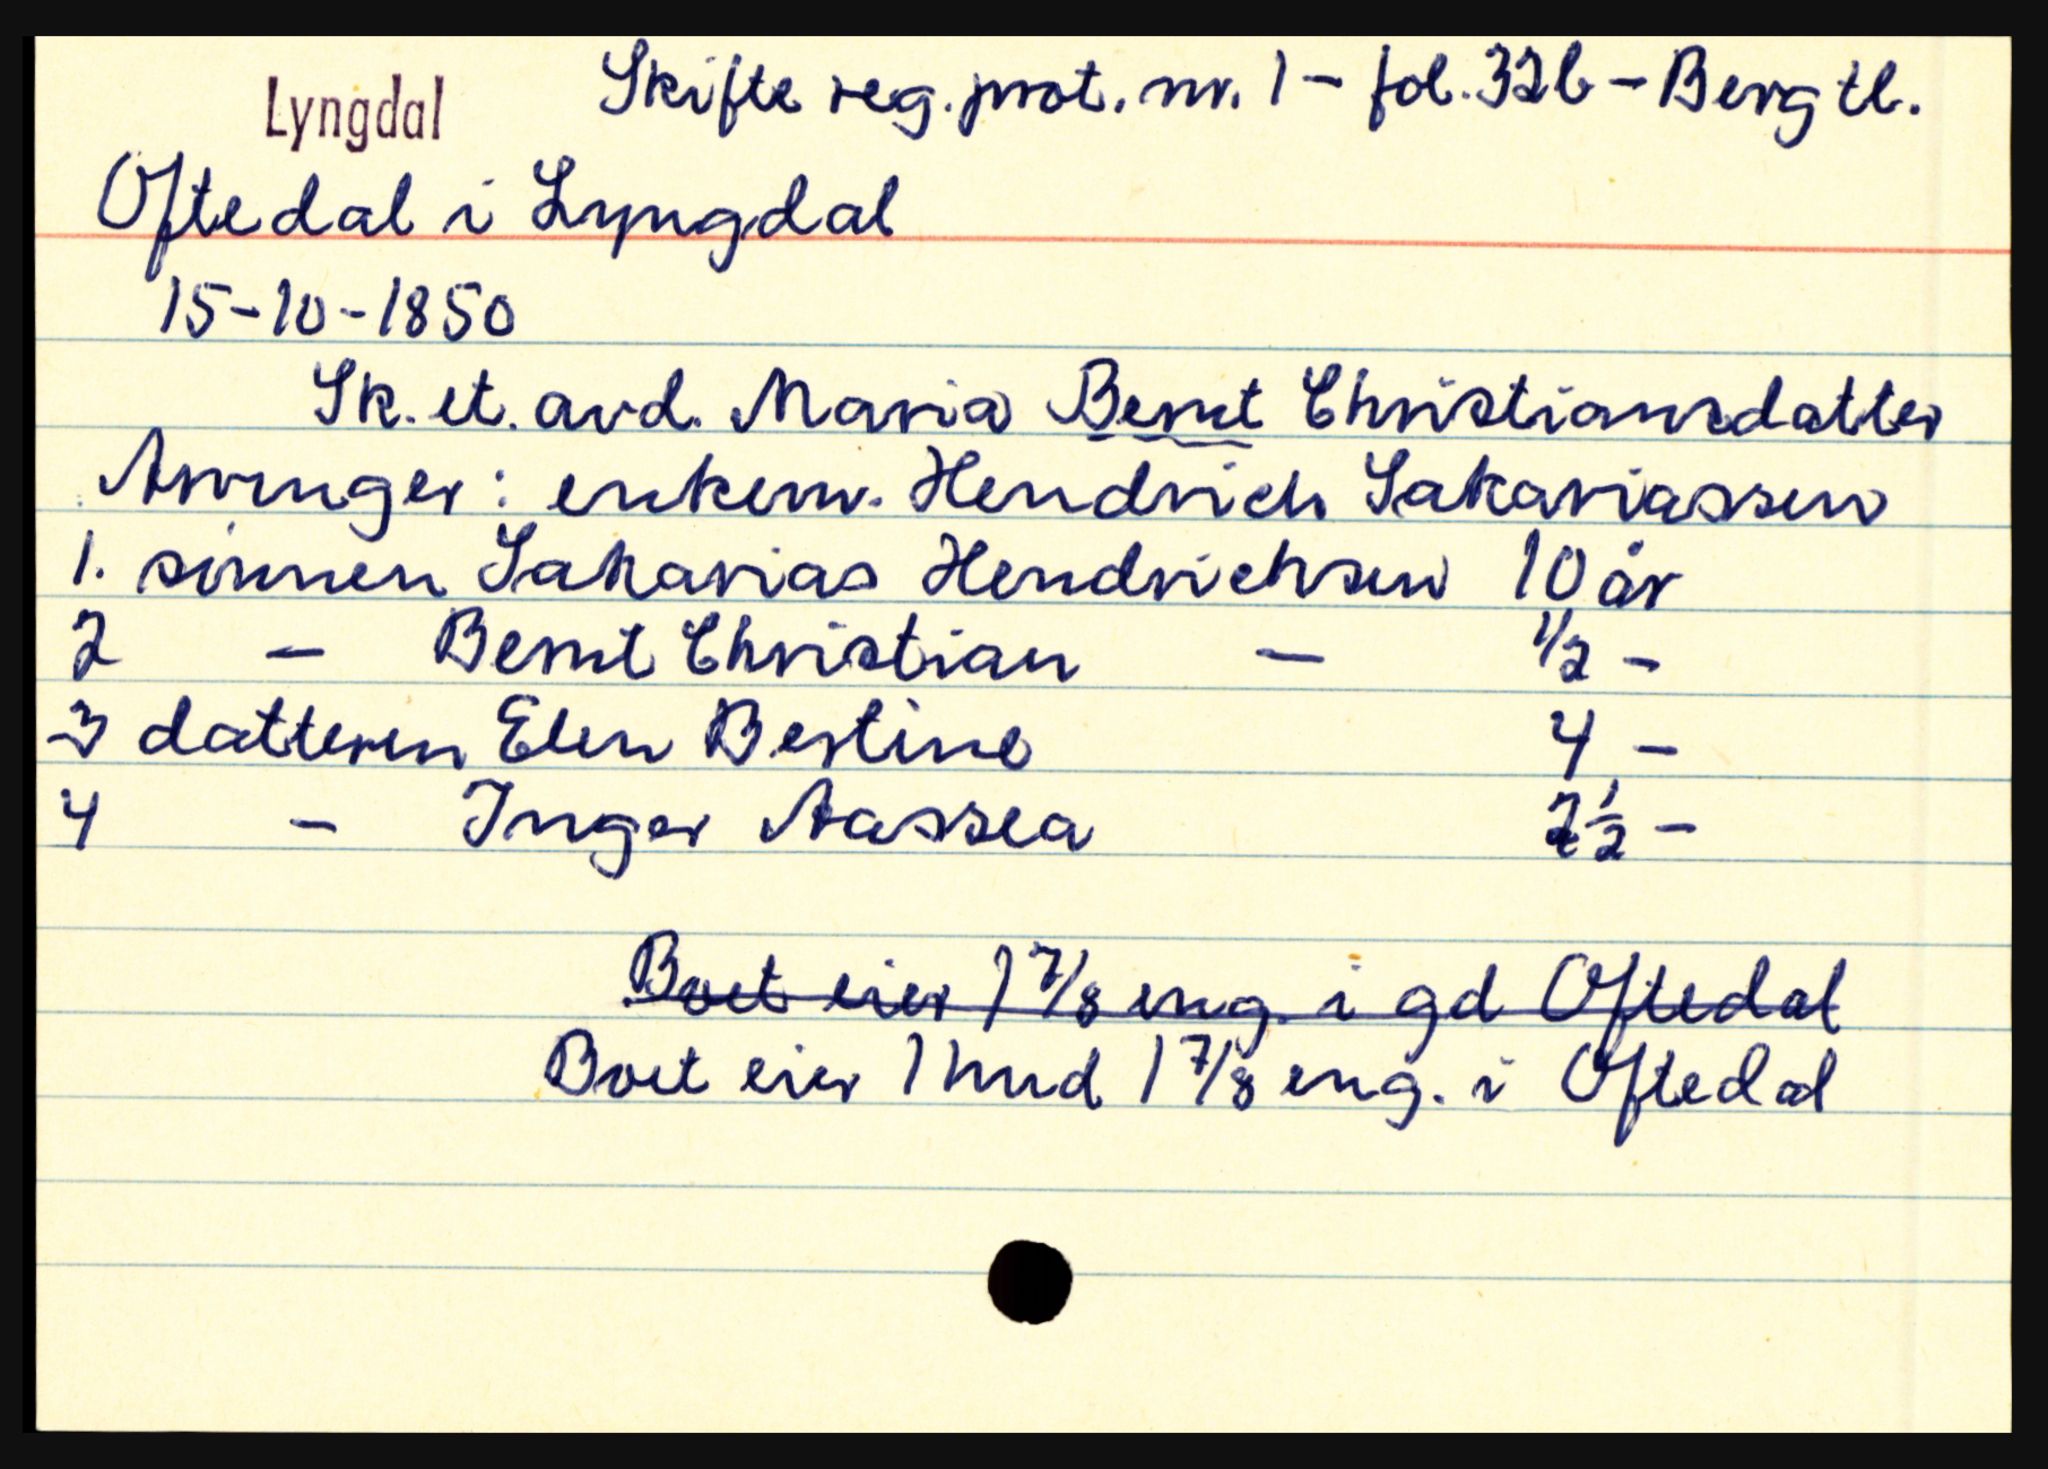 Lyngdal
Skifte reg. prot. nr. 1 - fol. 32b - Berg tl.
Oftedal i Lyngdal
15-10-1850
Sk. et. avd. Maria Bernt Christiansdatter
Arvinger: enkem. Hendrich Sakariassen
1. sönnen Sakarias Hendrichsen 10 år
2 - Bernt Christian - 1/2 -
3 datteren Elen Bertine 4 -
4 - Inger Aassea 7 1/2 -
Boet eier 1 7/8 eng. i gd Oftedal
Boet eier 1 hud 1 7/8 eng. i Oftedal